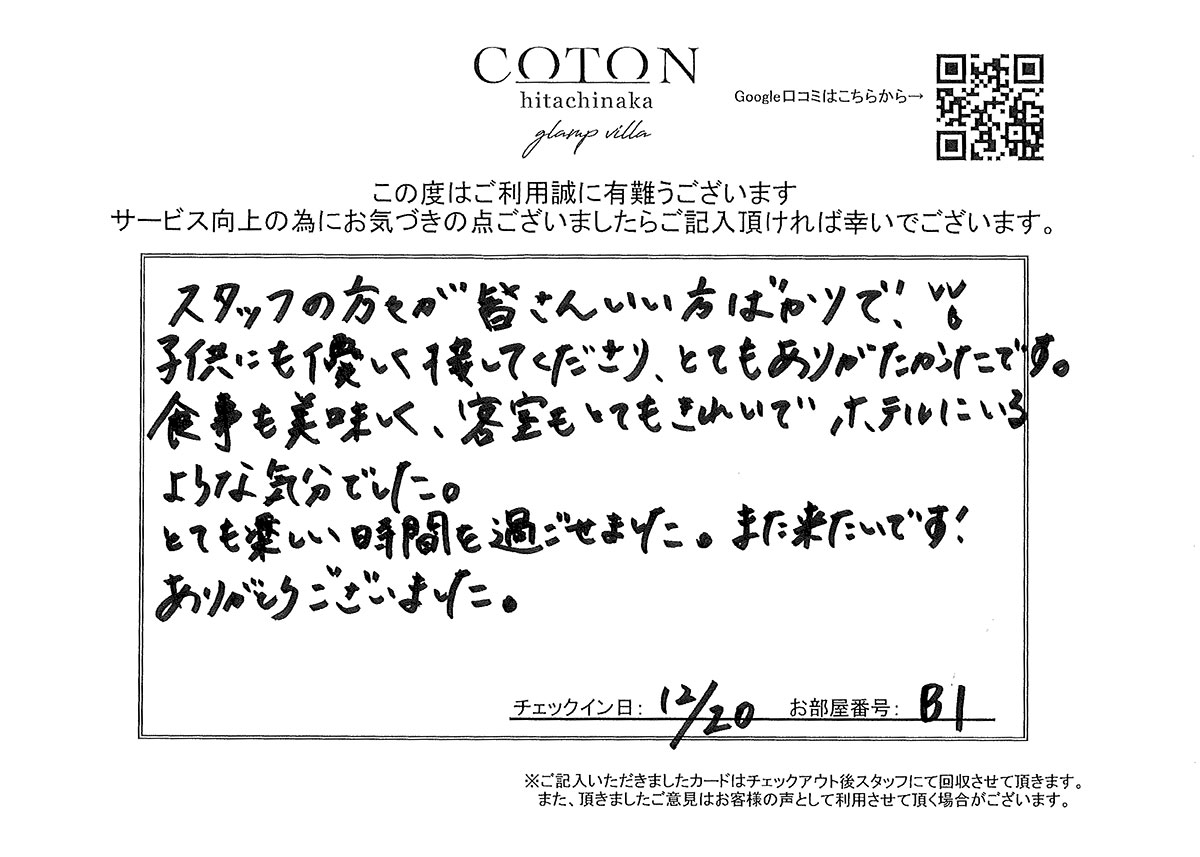 COTON
hitachinaka
glamp villa
Google口コミはこちらから→
この度はご利用誠に有難うございます
サービス向上の為にお気づきの点ございましたらご記入頂ければ幸いでございます。
スタッフの方々が皆さんいい方ばかりで、
子供にも優しく接してくださり、とてもありがたかったです。
食事も美味しく、客室もとてもきれいでホテルにいる
ような気分でした。
とても楽しい時間を過ごせました。また来たいです!
ありがとうございました。
チェックイン日: 12/20 お部屋番号: B1
※ご記入いただきましたカードはチェックアウト後スタッフにて回収させて頂きます。
また、頂きましたご意見はお客様の声として利用させて頂く場合がございます。